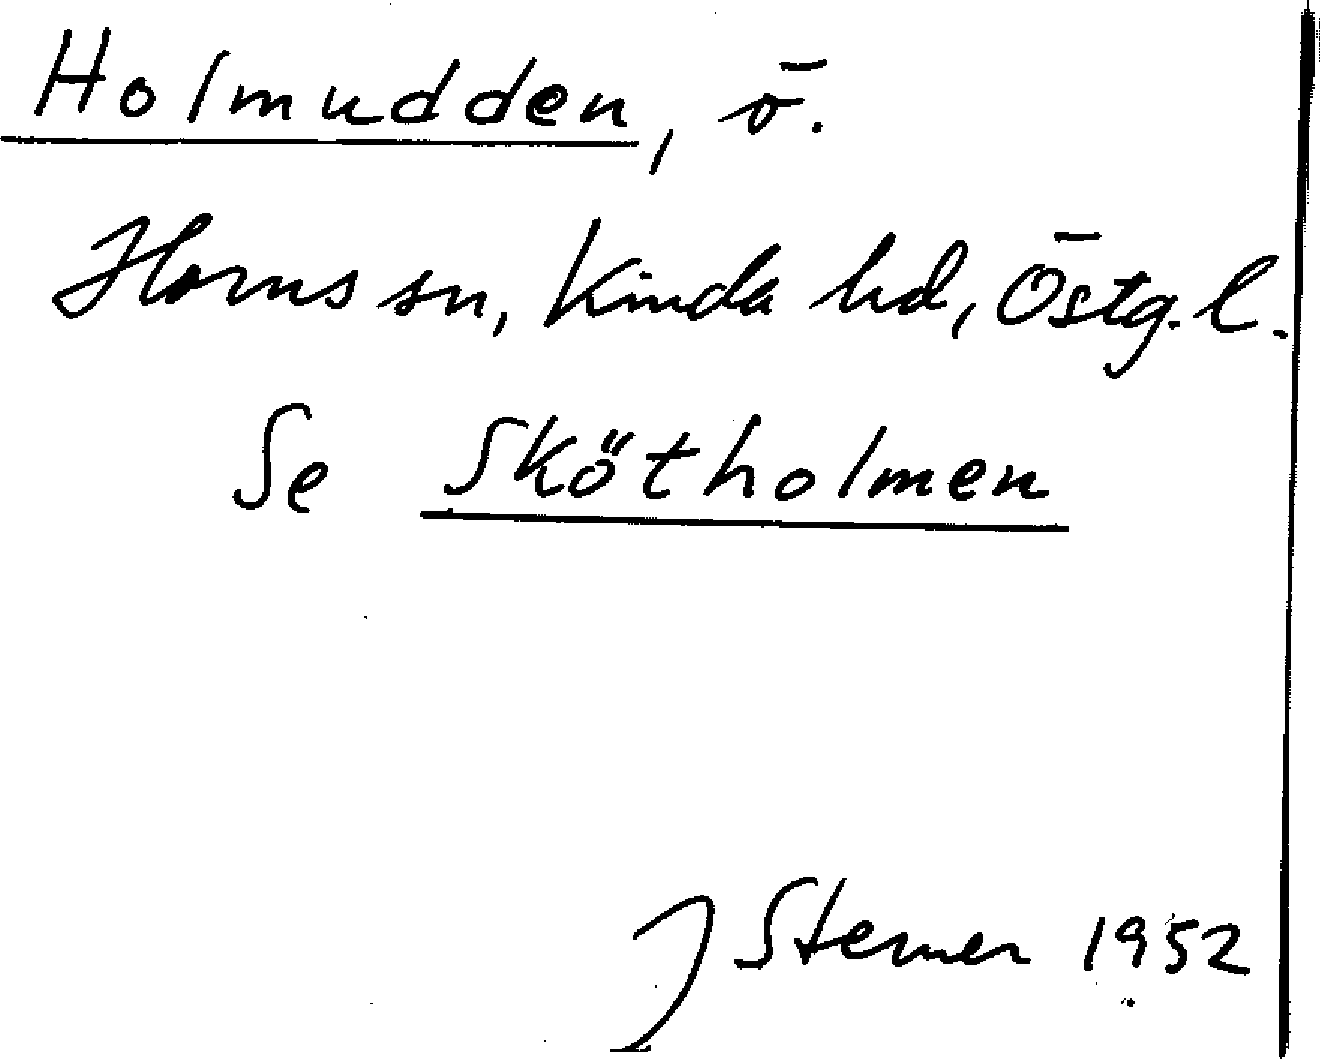 Holmudden, ö.
Horns sn, Kinda hd, Östg. l.
Se Skötholmen
J Sterner 1952